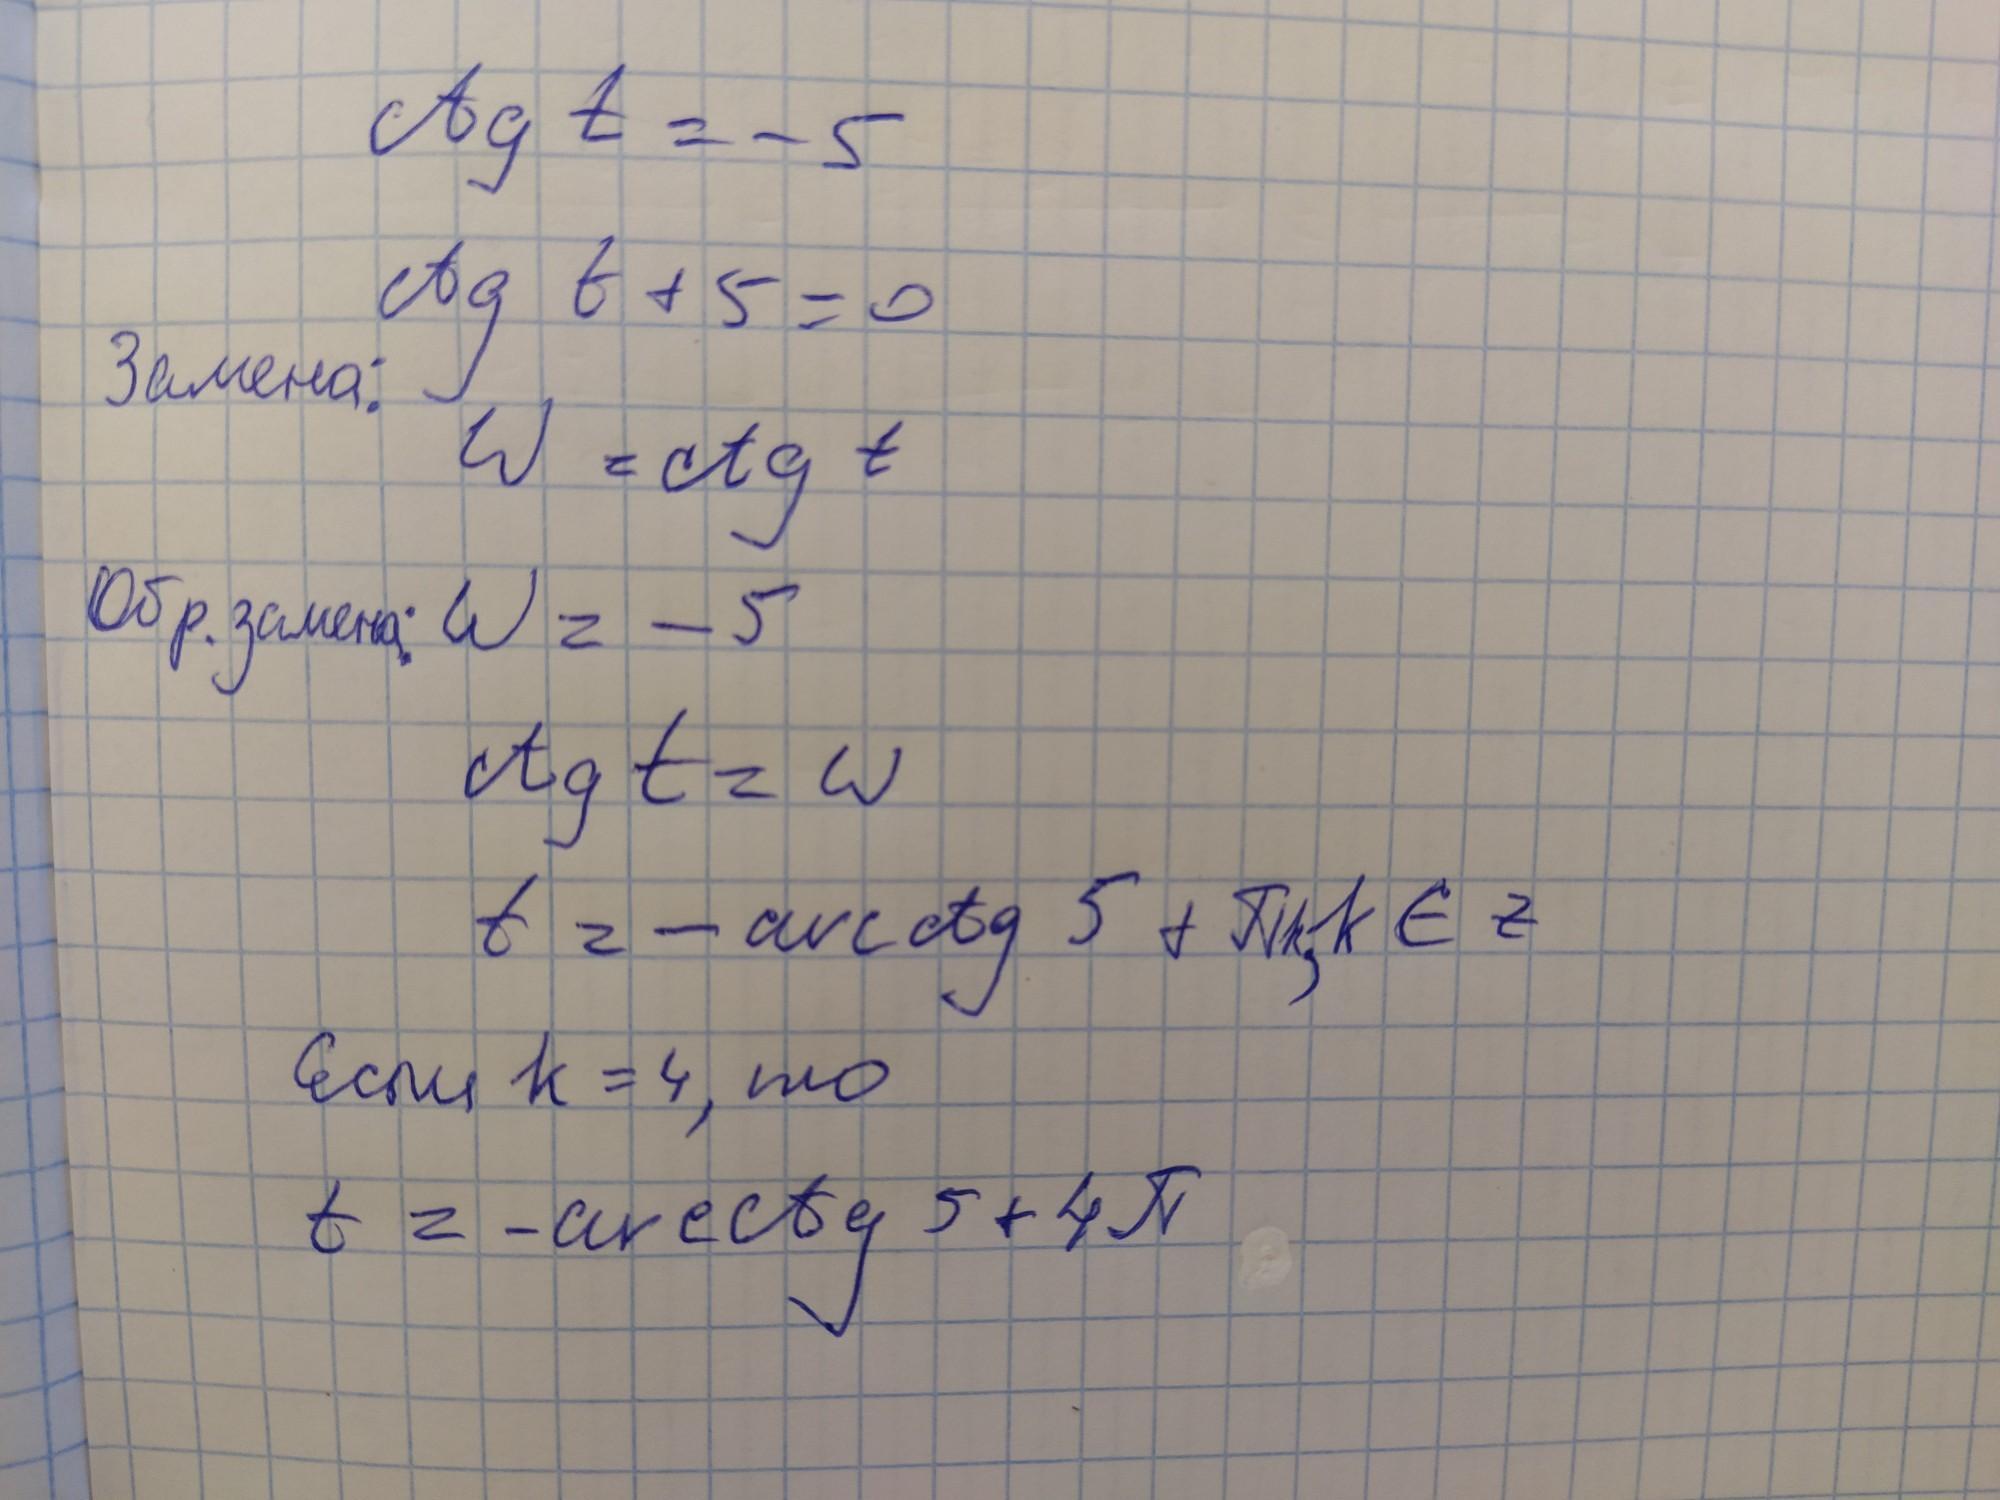 ctg t = -5
ctg t + 5 = 0
Замена:
W = ctg t
Обр. замена: W = -5
ctg t = W
t = - arcctg 5 + πk, k ∈ z
Если k = 4, то
t = - arcctg 5 + 4π